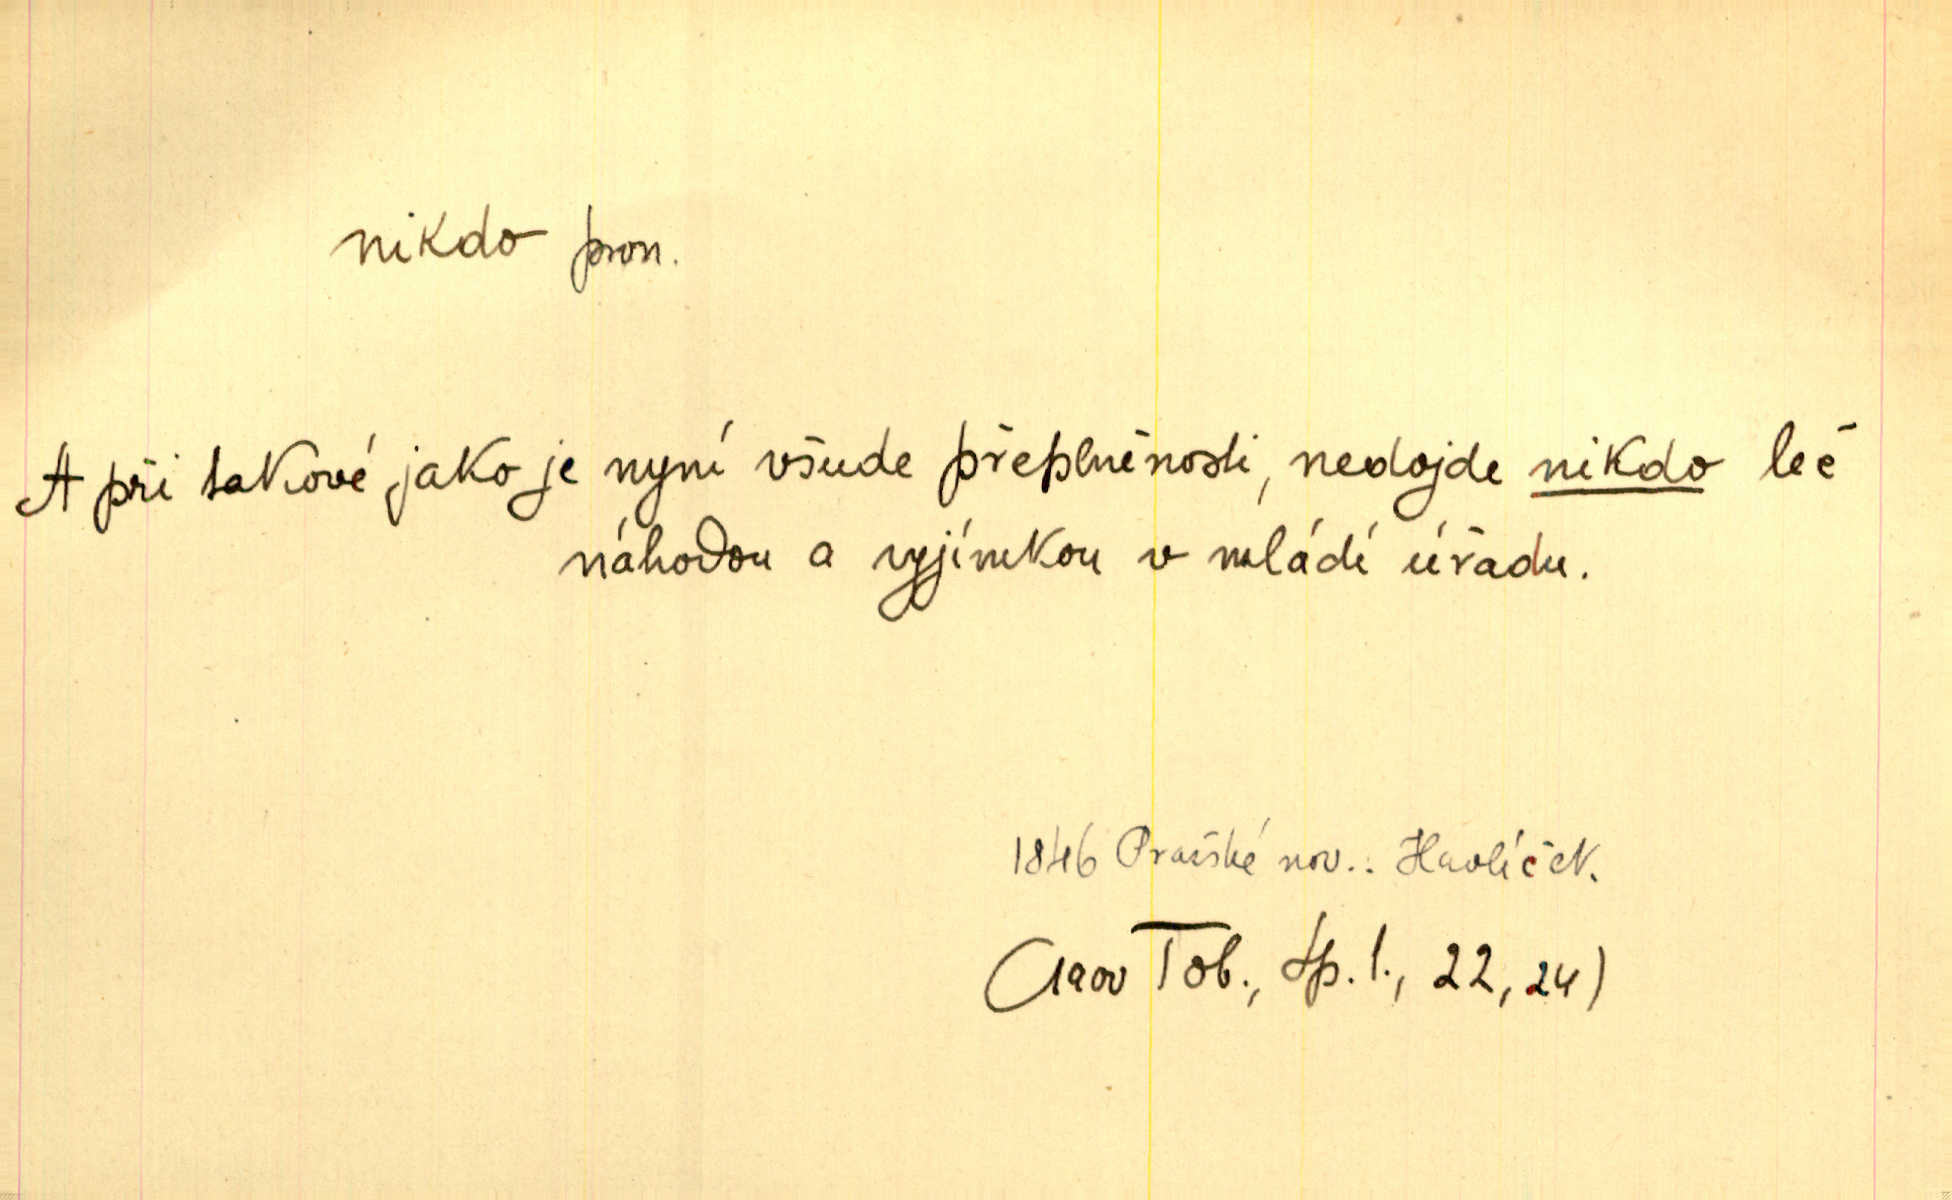 nikdo pron.
A při takové jako je nyní všude přeplněnosti, nedojde nikdo leč
náhodou a vyjímkou v mládí úřadu.
1846 Pražské nov.: Havlíček.
Tob., Sp. 1., 22, 24)